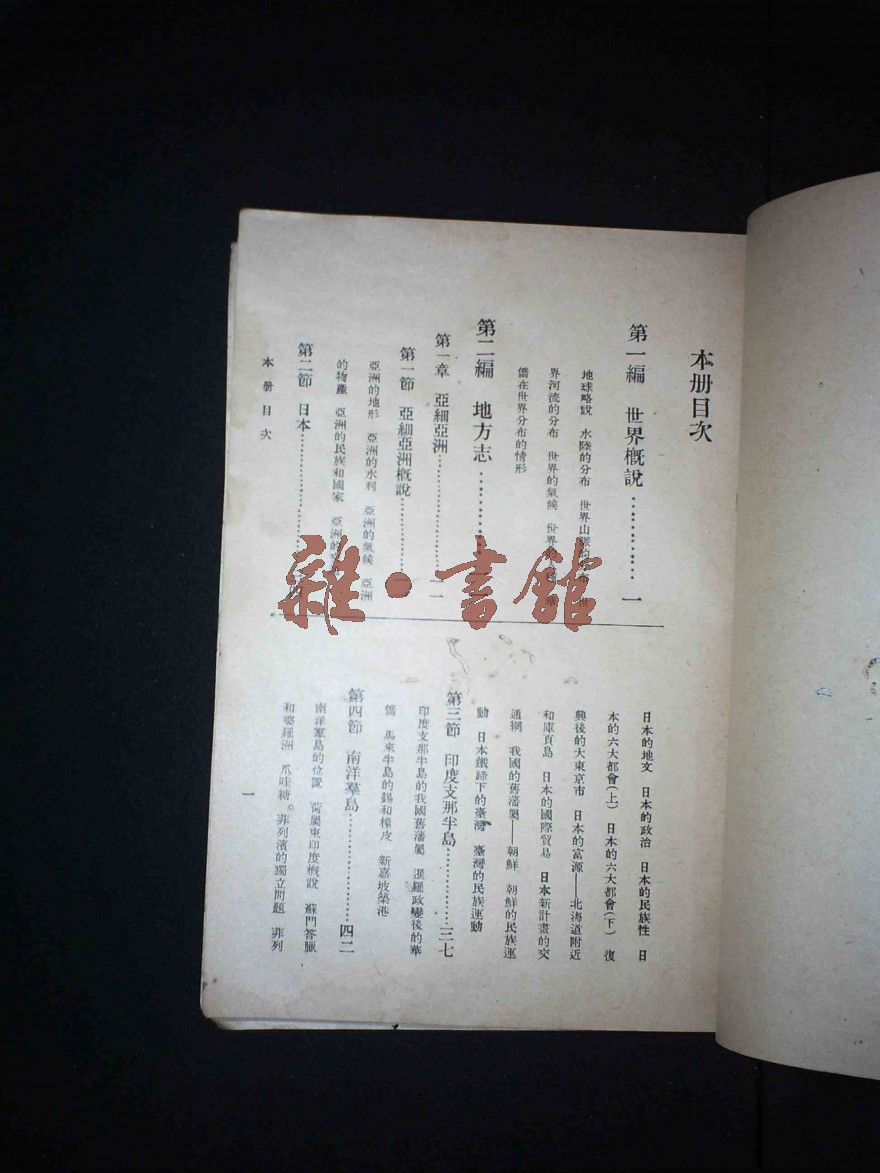 本册目次
第一編 世界概說…………一
地球略說 水陸的分布 世界山脈的分布 世
界河流的分布 世界的氣候 世界的
僑在世界分布的情形
第二編 地方志…………
第一章 亞細亞洲…………一一
第一節 亞細亞洲概說…………
亞洲的地形 亞洲的水利 亞洲的氣候 亞洲
的物產 亞洲的民族和國家 亞洲的
第二節 日本…………
本册目次
日本的地文 日本的政治 日本的民族性 日
本的六大都會(上) 日本的六大都會(下) 復
興後的大東京市 日本的富源——北海道附近
和庫頁島 日本的國際貿易 日本新計畫的交
通網 我國的舊藩屬——朝鮮 朝鮮的民族運
動 日本鐵蹄下的臺灣 臺灣的民族運動
第三節 印度支那半島…………三七
印度支那半島的我國舊藩屬 暹羅政變後的華
僑 馬來半島的錫和橡皮 新嘉坡築港
第四節 南洋羣島…………四二
南洋羣島的位置 荷屬東印度概說 蘇門答臘
和婆羅洲 爪哇糖。菲列濱的獨立問題 菲列
一
雜·書館